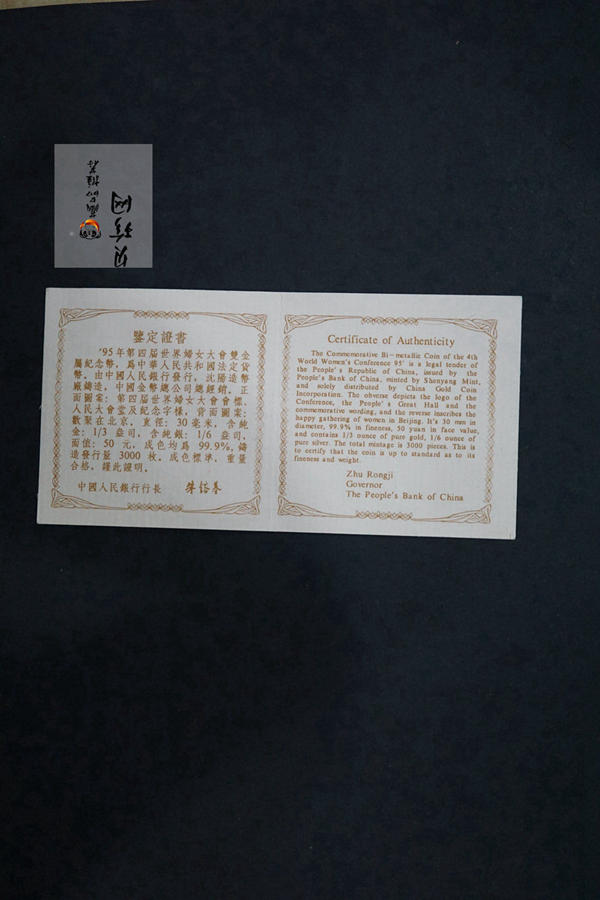 藏品推荐
贝珍网
鑒定證書
'95年第四届世界婦女大會雙金
屬紀念幣，爲中華人民共和國法定貨
幣，由中國人民銀行發行，沈陽造幣
廠鑄造，中國金幣總公司總經銷。正
面圖案：第四届世界婦女大會會標、
人民大會堂及紀念字樣，背面圖案：
歡聚在北京。直徑：30毫米，含純
金：1/3 盎司，含純銀：1/6 盎司，
面值：50 元，成色均爲 99.9%，鑄
造發行量 3000 枚。成色標準，重量
合格，謹此證明。
中國人民銀行行長
Certificate of Authenticity
The Commemorative Bi-metallic Coin of the 4th
World Women's Conference 95' is a legal tender of
the People's Republic of China, issued by the
People's Bank of China, minted by Shenyang Mint,
and solely distributed by China Gold Coin
Incorporation. The obverse depicts the logo of the
Conference, the People's Great Hall and the
commemorative wording, and the reverse inscribes the
happy gathering of women in Beijing. It's 30 mm in
diameter, 99.9% in fineness, 50 yuan in face value,
and contains 1/3 ounce of pure gold, 1/6 ounce of
pure silver. The total mintage is 3000 pieces. This is
to certify that the coin is up to standard as to its
fineness and weight.
Zhu Rongji
Governor
The People's Bank of China